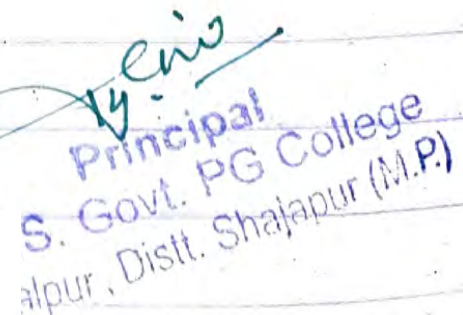 Principal
S. Govt. PG College
alpur, Distt. Shajapur (M.P.)